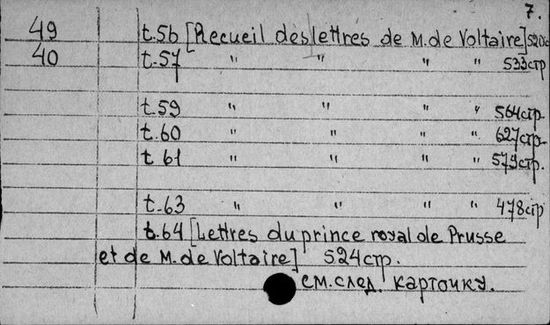 7.
49 t.56 [Recueil des lettres de M. de Voltaire] 520с
40 t.57 " " " " 533стр
t.59 " " " " 564стр.
t.60 " " " " 627стр.
t 61 " " " " 579стр.
t.63 " " " " 478стр
t.64 [Lettres du prince royal de Prusse
et de M. de Voltaire] 524стр.
см. след. карточку.